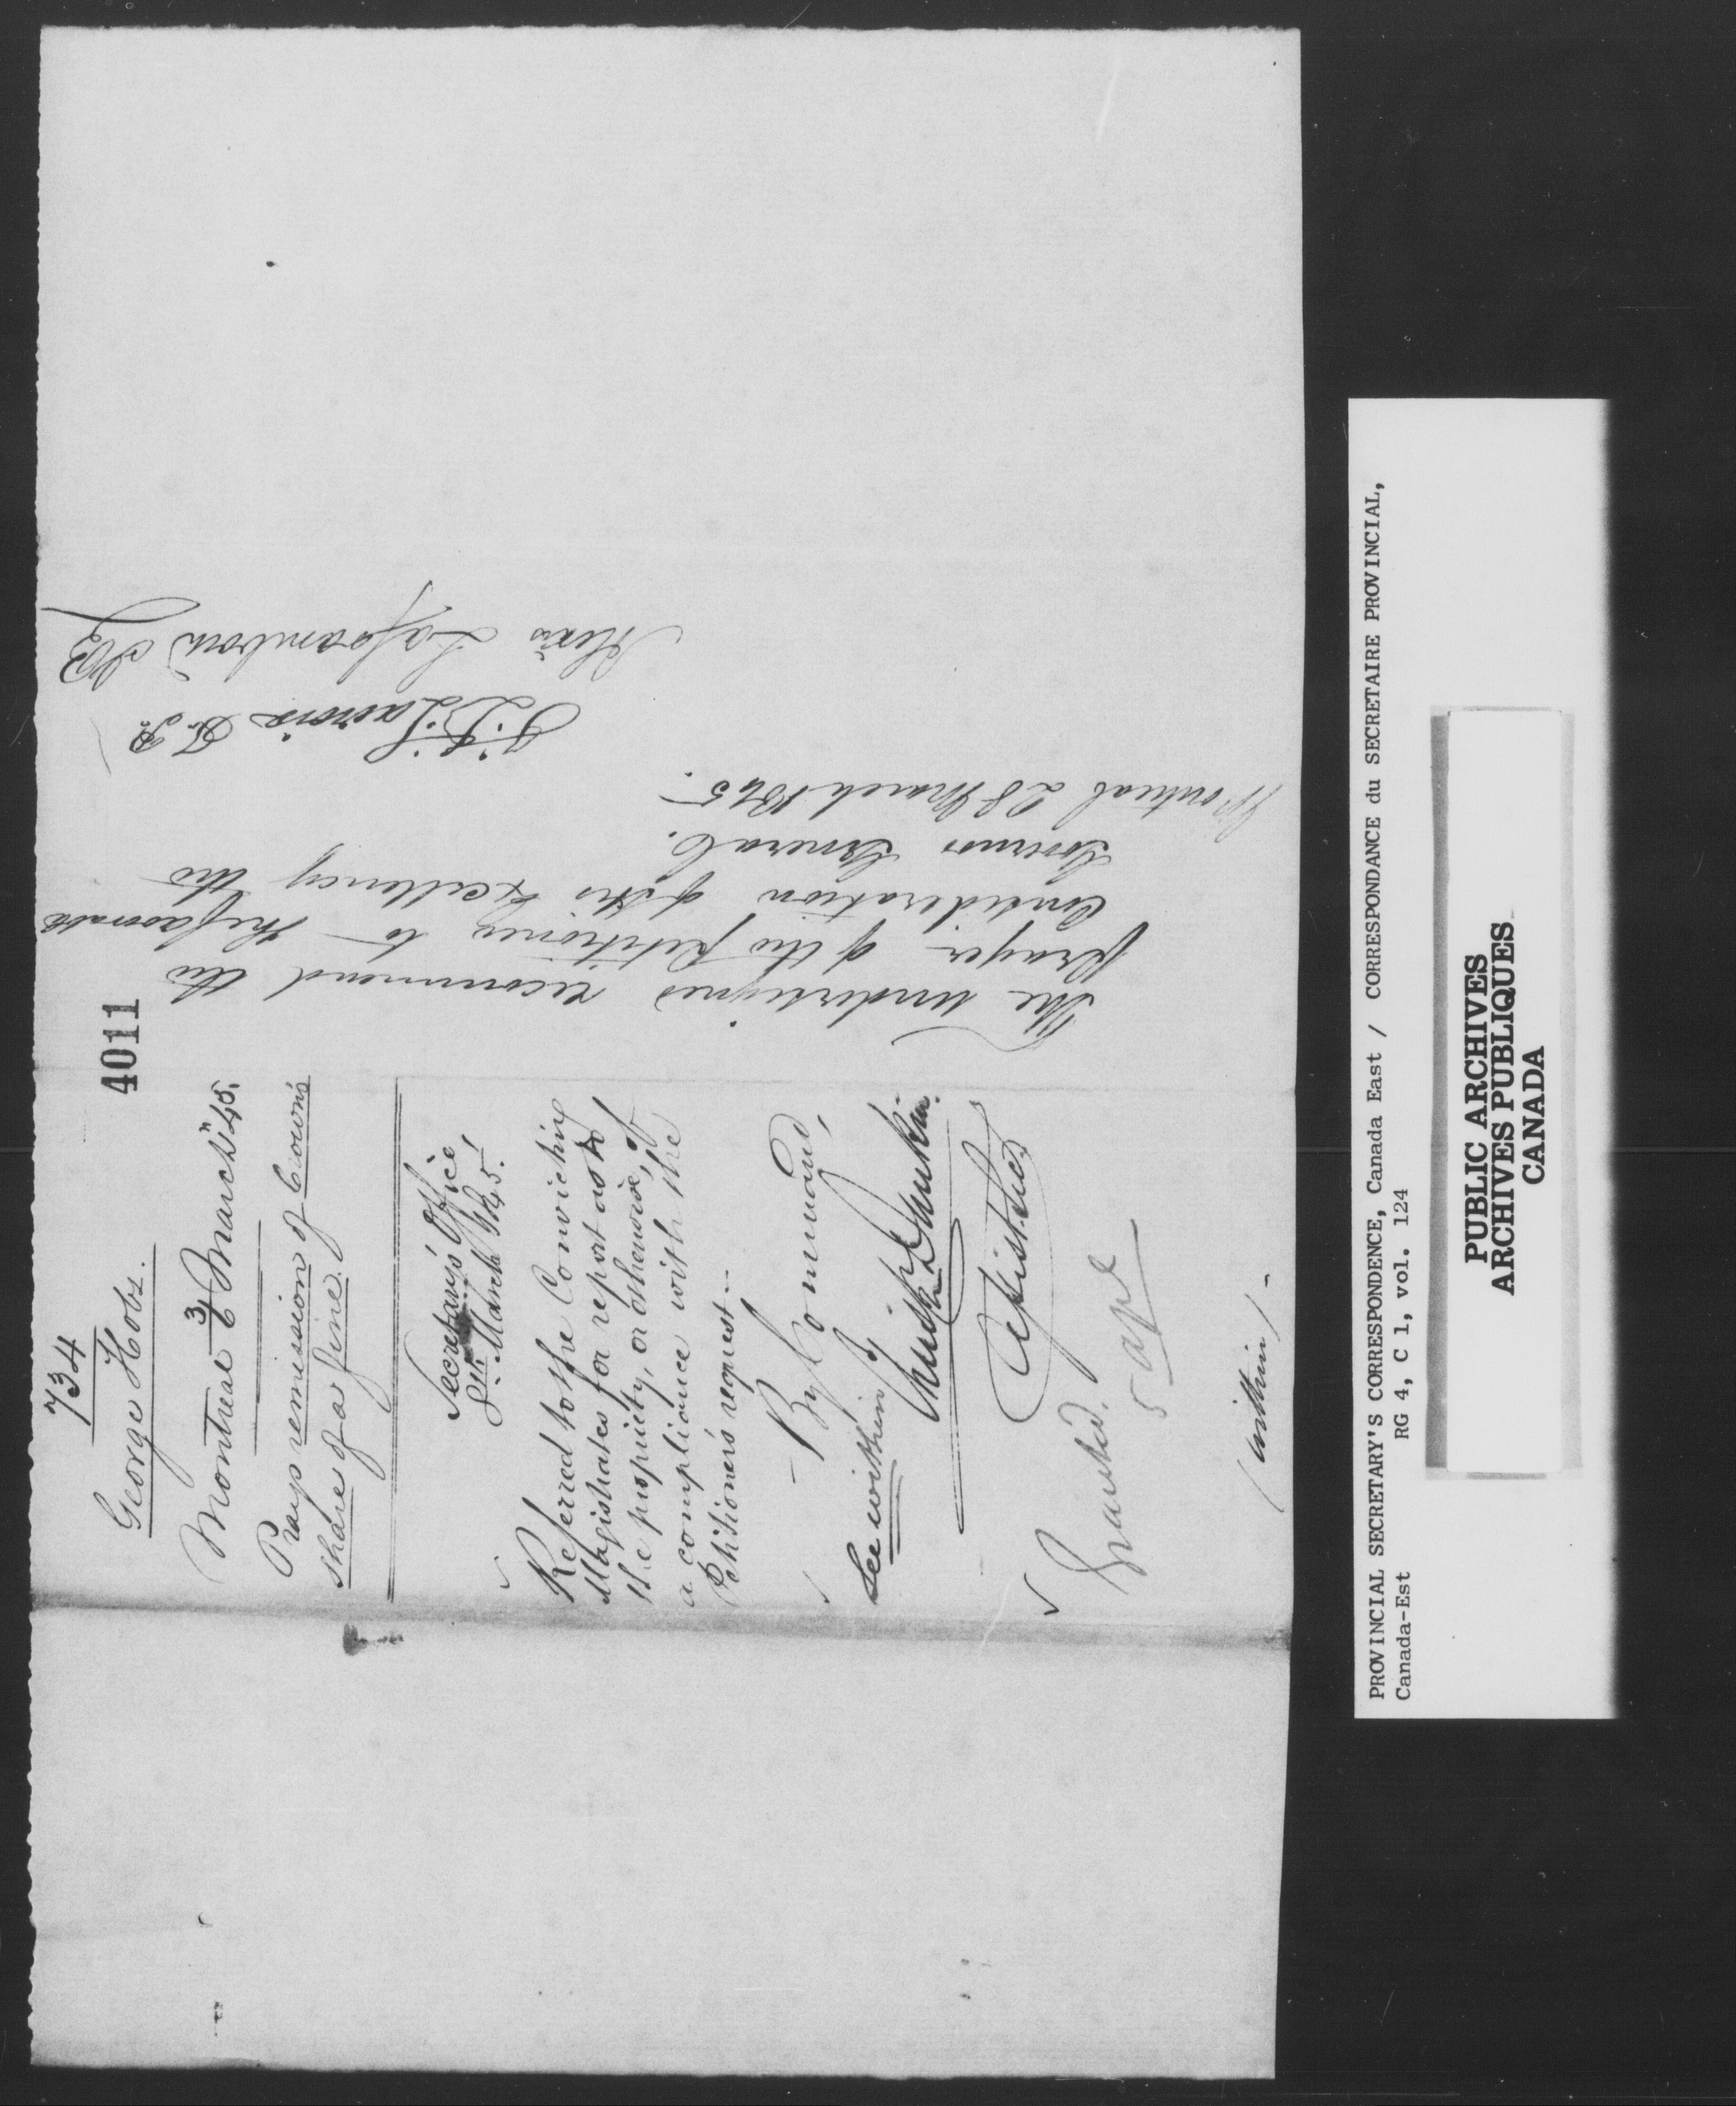 734
4011
George Hobs.
Montreal 3 March "45.
Prays remission of Crown's
share of a fine.
Secretary's Office
8th March 1845.
Referred to the Convicting
Magistrates for report as to
the propriety, or otherwise, of
a compliance with the
Petitioner's request—
By Command,
See within
Dunkin.
Assist. Secy
Granted.
5 Apl
(within)
The undersigned recommend the
prayer of the petitioner to the favorable
Consideration of His Excellency the
Governor General.
Montreal 28 March 1845
Lacroix J. P.
Alexis Laframboise J.P.
PROVINCIAL SECRETARY'S CORRESPONDENCE, Canada East / CORRESPONDANCE du SECRETAIRE PROVINCIAL,
Canada-Est RG 4, C 1, vol. 124
PUBLIC ARCHIVES
ARCHIVES PUBLIQUES
CANADA